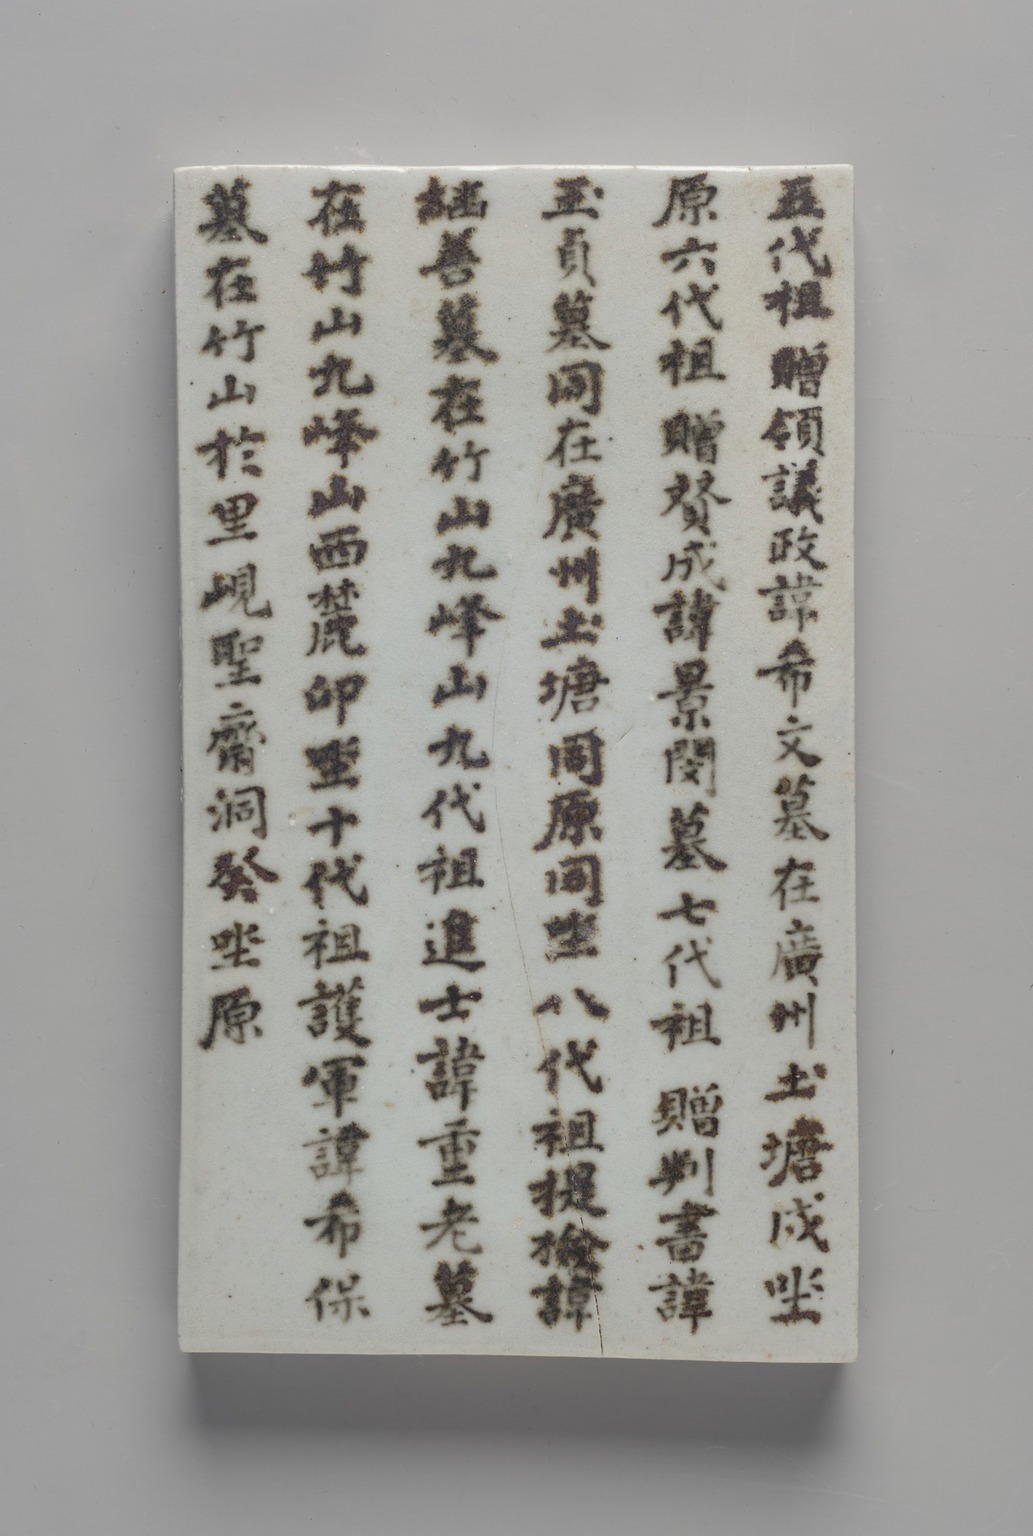 五代祖 贈領議政諱希文墓在廣州土塘戌坐
原六代祖 贈贊成諱景閔墓七代祖 贈判書諱
玉貞墓同在廣州土塘同原同坐八代祖提檢諱
繼善墓在竹山九峰山九代祖進士諱重老墓
在竹山九峰山西麓卯坐十代祖護軍諱希保
墓在竹山於里峴聖齋洞癸坐原